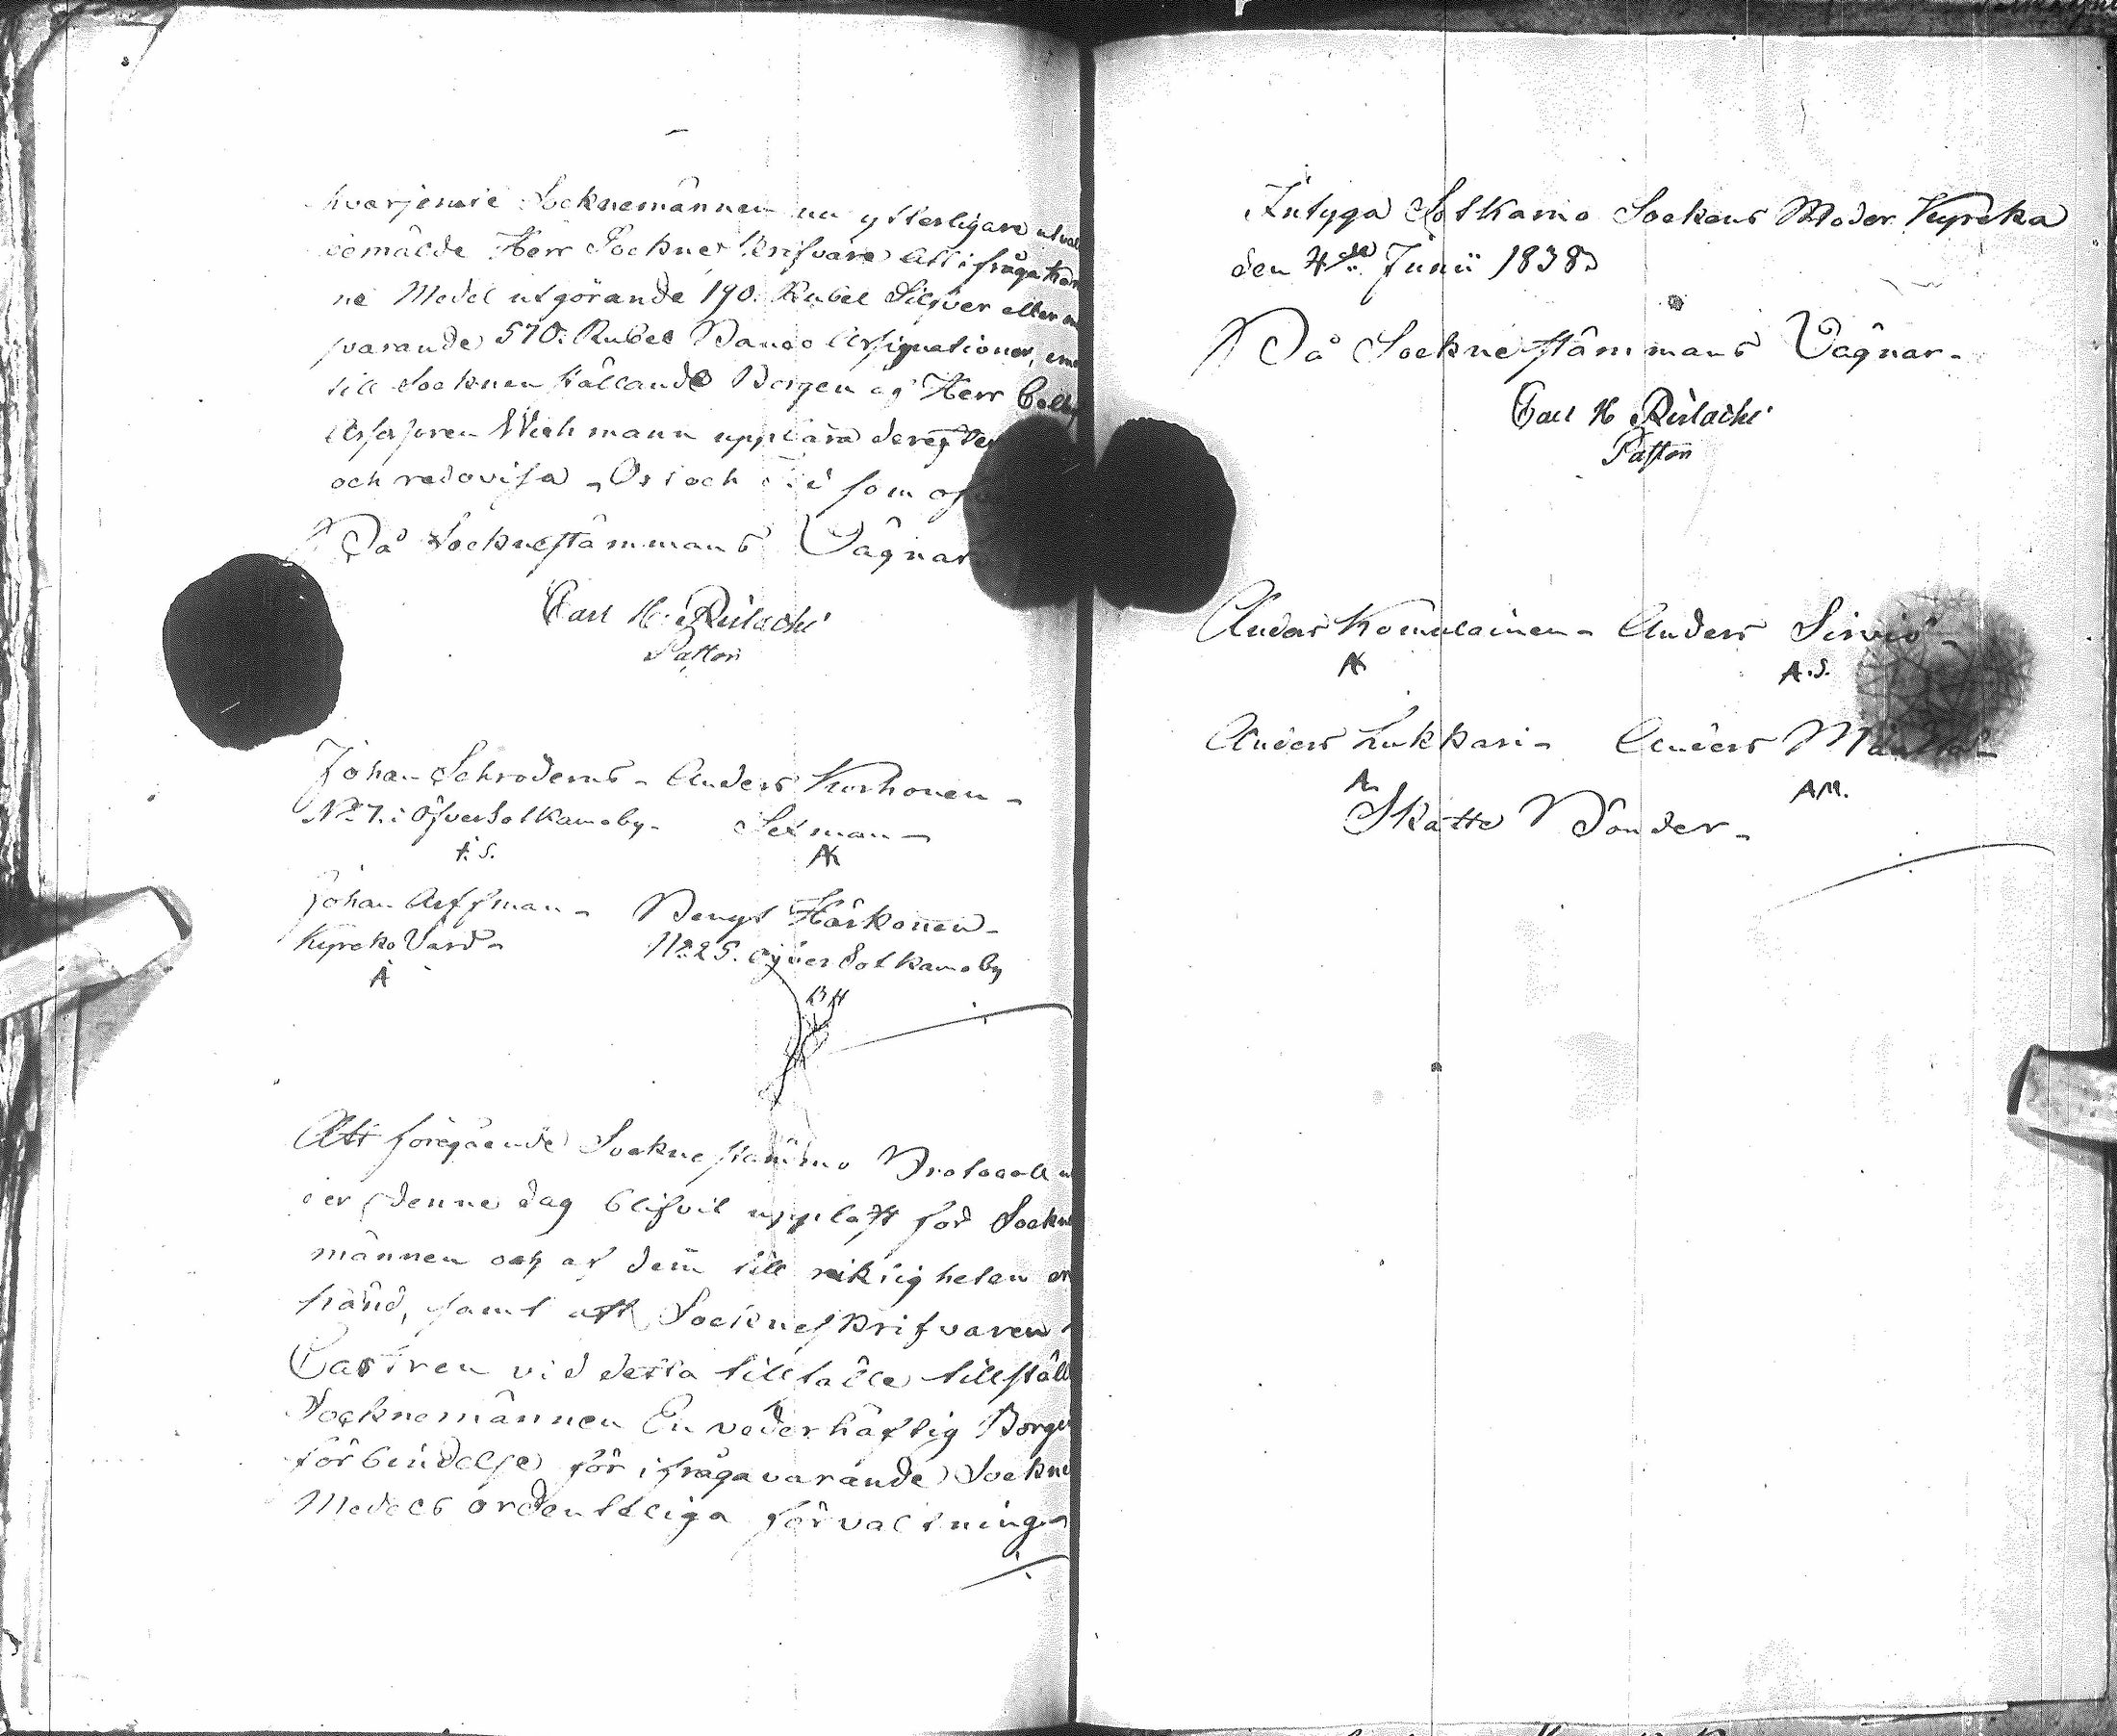 hvarjemte Socknemännen nu ytterligare
bemälde Herr Sockne Skrifvare att ifråga
ne Medel utgörande 190. Rubel Silfver eller
svarande 570. Rubel Banco Assignationer,
till Socknen hållande Borgen af Herr
Assessoren Wichmann uppbära
och redovisa, Ort och Tid som
På Socknestämmans Vägnar
Carl H. Rislachi
Pastor
Johan Schroderus - Anders Korhonen -
No 7. i Öfversotkamoby - Sexman -
J. S. AK
Johan Arffman - Bengt Härkönen -
Kyrko Värd - No 25. Öfver Sotkamoby
A BH
Att föregående Sockne stämmo Protocoll
denne dag blifvit uppläst för Sockne
männen och af dem till riktigheten er
känd, samt att Sockneskrifvaren
Castren vid detta tillfälle tillställt
Socknemännen En vederhäftig Borgens
förbindelse för ifrågavarande Sockne
Medels ordentliga förvaltning -
Intyga Sotkamo Sockens Moder Kyrcka
den 4de Junii 1838
På Socknestämmans Vägnar -
Carl H Rislachi
Pastor
Anders Komulainen - Anders Sirviö -
AK A.S.
Anders Lukkari - Anders Mäntta -
A AM.
Skatte Bönder -